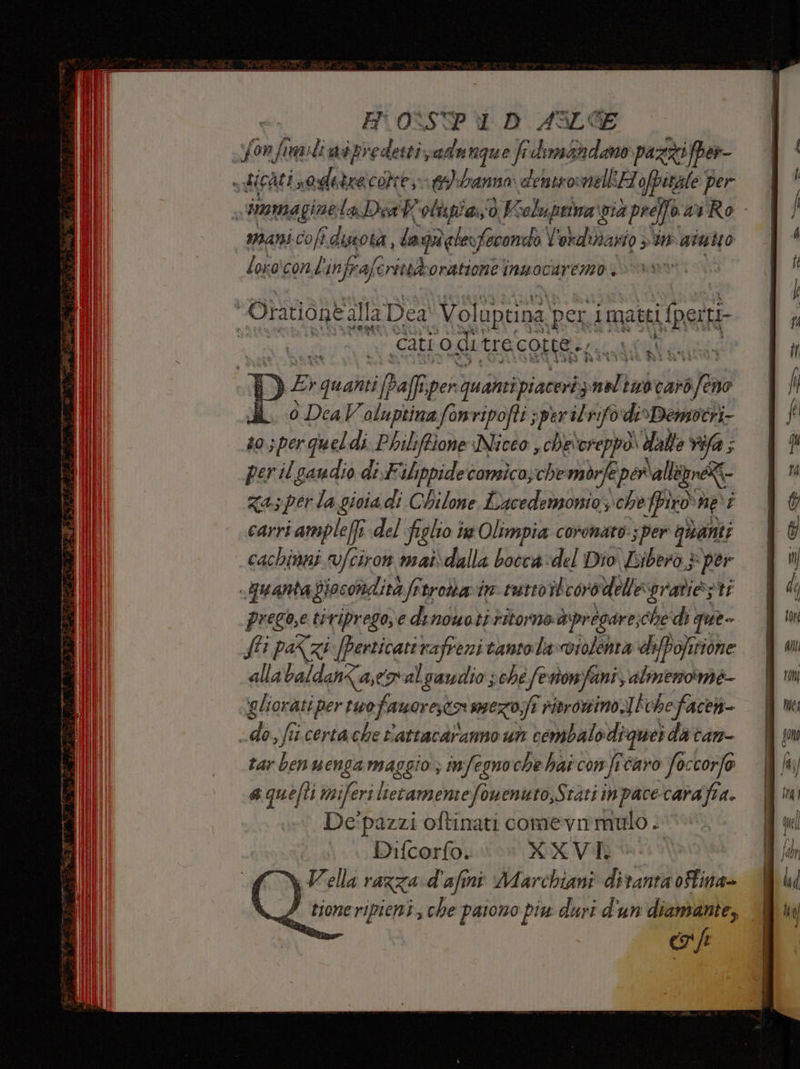 H O S P I D A L E
son simili a i predetti, adunque si dimandano pazzi sper-
ticati, o di tre cotte, & hanno dentro nell'Hospitale per
immagine la Dea Volupia, ò Voluptina già presso a i Ro-
mani così dinota, la quale secondo l'ordinario, in aiutto
loro con l'infrascritta oratione innocaremo.
Oratione alla Dea Voluptina per i matti sperti-
cati o di tre cotte.
PEr quanti spassi, per quanti piaceri, nel tuo caro seno
ò Dea Voluptina son riposti; per il riso di Democri-
to; per quel di Philistione Niceo, che creppò dalle risa;
per il gaudio di Filippide comico, che morse per allegrez-
za; per la gioia di Chilone Lacedemonio, che spirò ne i
carri amplessi del figlio in Olimpia coronato; per quanti
cachinni usciron mai dalla bocca del Dio Libero; per
quanta giocondità si troua in tutto il coro delle gratie; ti
prego, e ti riprego, e di nouo ti ritorno à pregare, che di que-
sti pazzi sperticati rafreni tanto la violenta dispositione
alla baldanza, & al gaudio; che se non sani, almeno me-
gliorati per tuo fauore, & mezo, si ritrouino. Il che facen-
do, sii certa che t'attacaranno un cembalo di quei da can-
tar ben uenga maggio; in segno che hai con si caro soccorso
a questi miseri lietamente souenuto, Stati in pace cara sia.
De' pazzi ostinati come vn mulo.
Discorso. XXVI.
QVella razza d'asini Marchiani di tanta ostina-
tione ripieni, che paiono piu duri d'un diamante,
& si